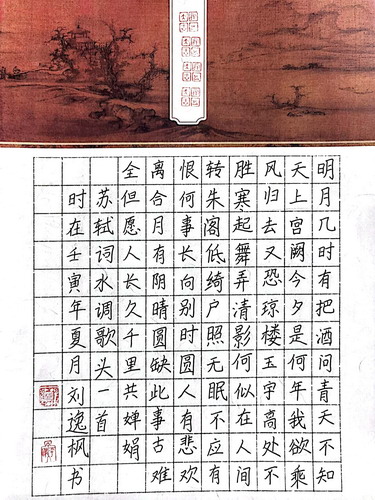 明月几时有把酒问青天不知
天上宫阙今夕是何年我欲乘
风归去又恐琼楼玉宇高处不
胜寒起舞弄清影何似在人间
转朱阁低绮户照无眠不应有
恨何事长向别时圆人有悲欢
离合月有阴晴圆缺此事古难
全但愿人长久千里共婵娟
苏轼词水调歌头一首
时在壬寅年夏月刘逸枫书